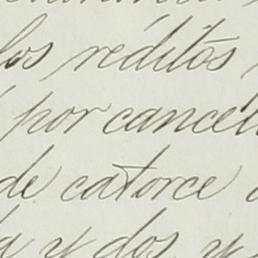 los réditos
por cancel
de catorce
y dos y